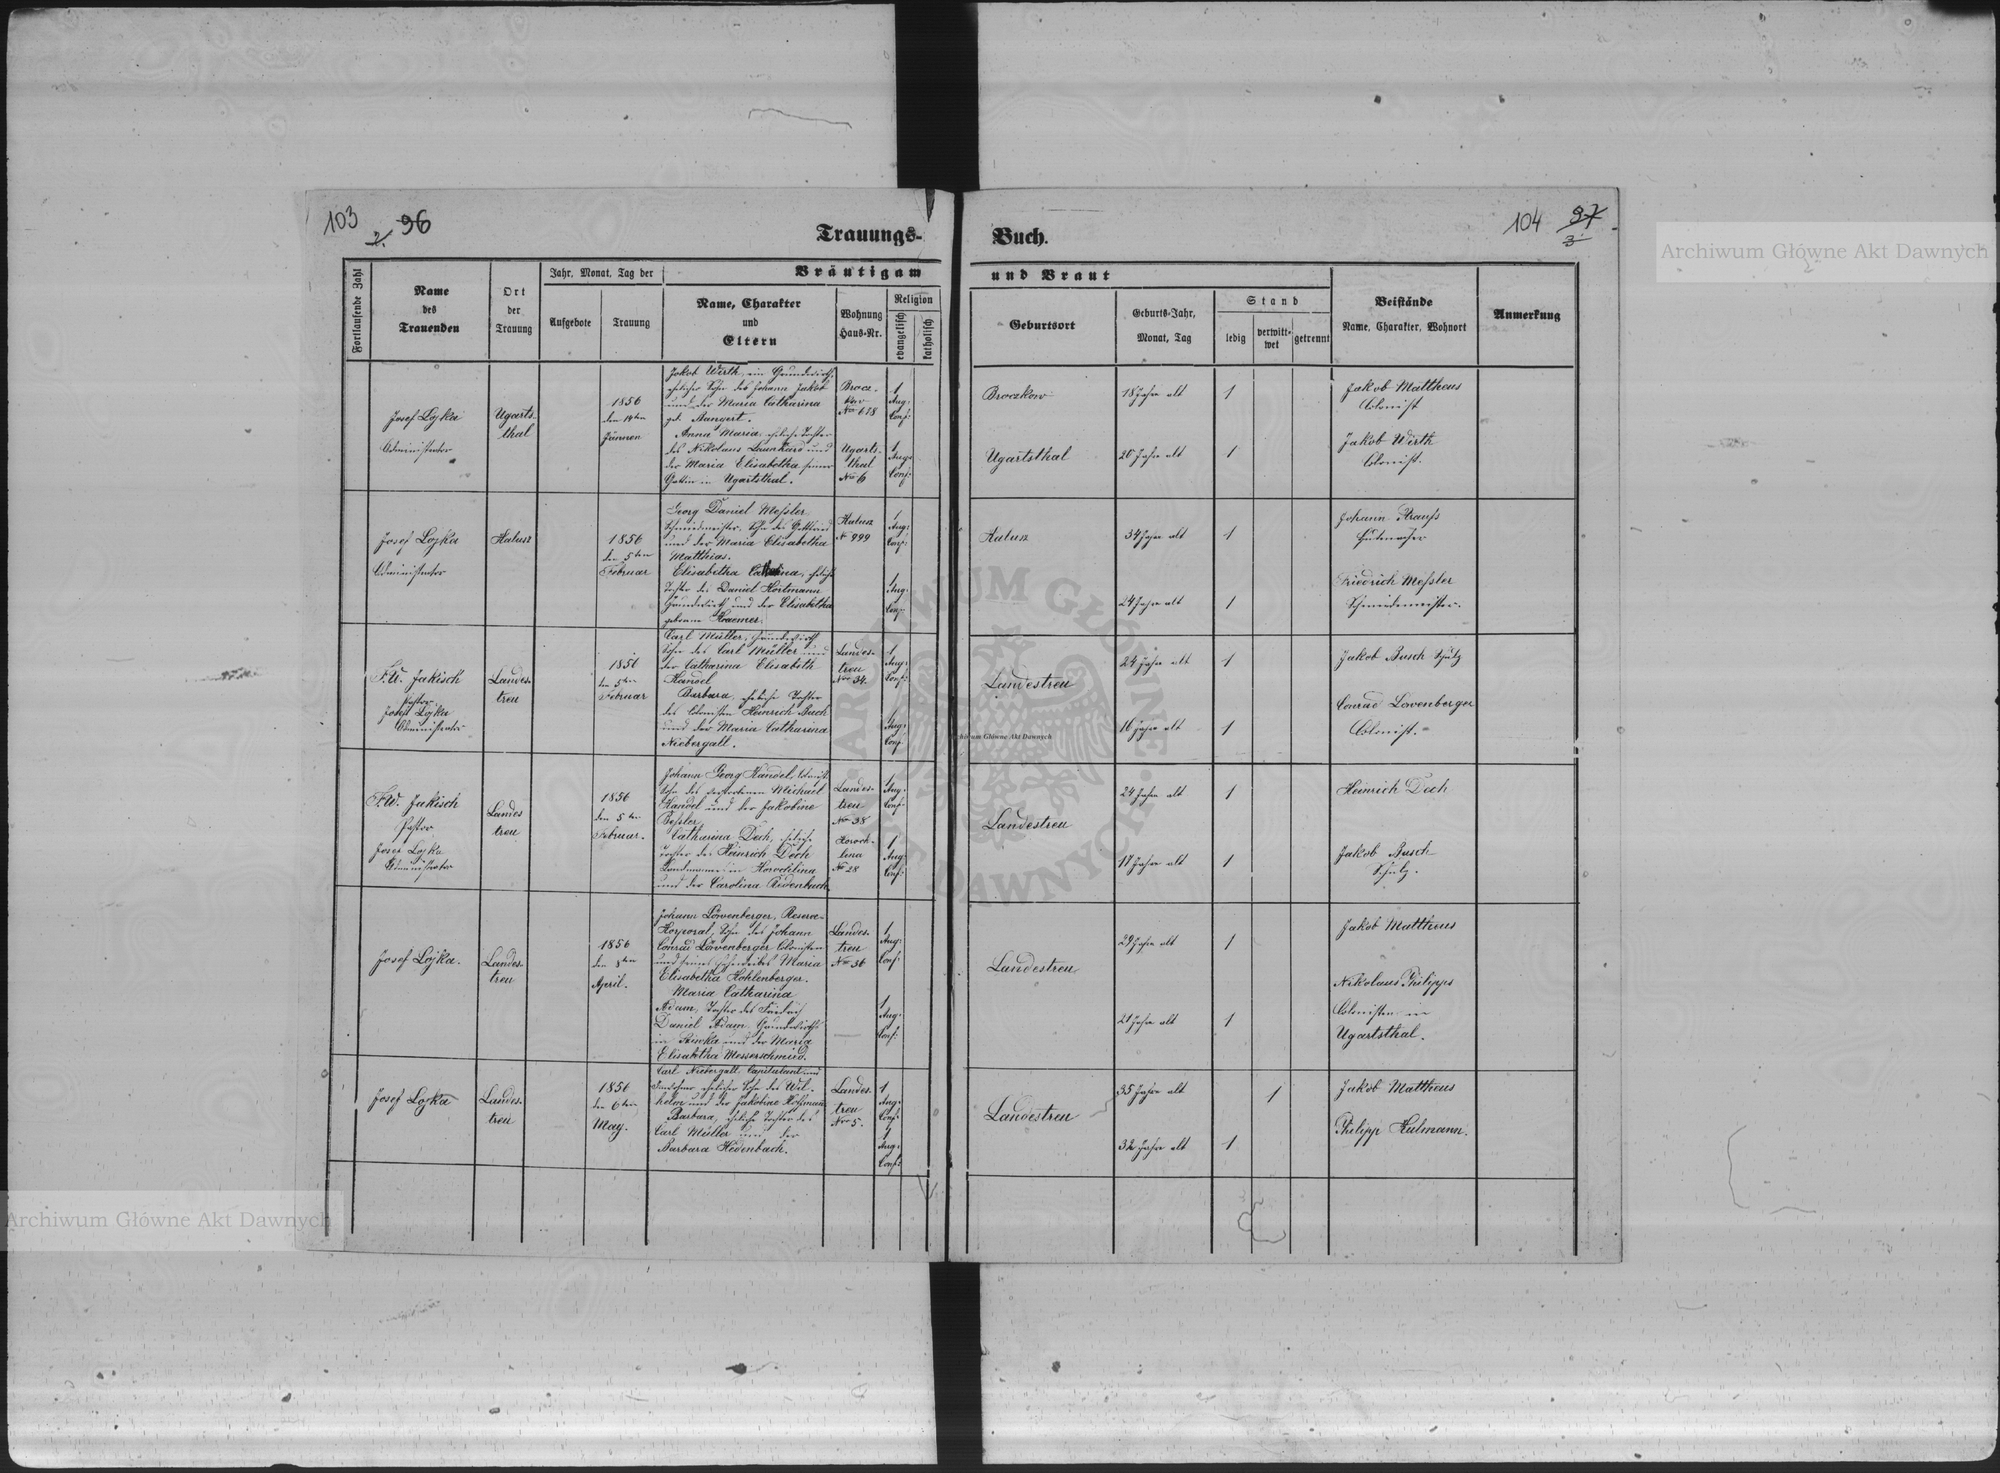 103
2. 96
Trauungs-
Buch.
104 97
3
Archiwum Główne Akt Dawnych
Fortlaufende Zahl
Name
des
Trauenden
Ort
der
Trauung
Jahr, Monat, Tag der
Aufgebote
Trauung
Bräutigam
Name, Charakter
und
Eltern
Wohnung
Haus-Nr.
Religion
evangelisch
katholisch
und Braut
Geburtsort
Geburts-Jahr,
Monat, Tag
Stand
ledig
verwitt-
wet
getrennt
Beistände
Name, Charakter, Wohnort
Anmerkung
Josef Lojka
Administrator
Ugarts-
thal
1856
den 14ten
Jännen
Jakob Werth, ein Grundwirth,
ehelicher Sohn des Johann Jakob
und der Maria Catharina
geb. Bangert.
Anna Maria, eheliche Tochter
des Nikolaus Launhard und
der Maria Elisabetha seiner
Gattin in Ugartsthal.
Brocz-
kow
No 618
Ugarts-
thal
No 6
1
Aug:
Conf:
1
Aug:
Conf:
Broczkow
Ugartsthal
18 Jahre alt
20 Jahre alt
1
1
Jakob Mattheus
Colonist
Jakob Werth
Colonist.
Josef Lojka
Administrator
Kalusz
1856
den 5ten
Februar
Georg Daniel Messler
Schmiedmeister, Sohn des Gottlieb
und der Maria Elisabetha
Matthias.
Elisabetha Catharina, eheliche
Tochter des Daniel Hortmann
Grundwirth und der Elisabetha
geborne Kraemer.
Kalusz
No 999
1
Aug:
Conf:
1
Aug:
Conf:
Kalusz
34 Jahre alt
24 Jahre alt
1
1
Johann Strauss
Hutmacher
Friedrich Messler
Schmiedmeister.
F.W. Jakisch
Pastor
Josef Lojka
Administrator
Landes-
treu
1856
den 5ten
Februar
Carl Müller, Grundwirth
Sohn des Carl Müller und
der Catharina Elisabeth
Kandel
Barbara, eheliche Tochter
des Colonisten Heinrich Buch
und der Maria Catharina
Niebergall.
Landes-
treu
Nro 34.
1
Aug:
Conf:
1
Aug:
Conf:
Landestreu
24 Jahre alt
16 Jahre alt
1
1
Jakob Busch Schulz
Conrad Lowenberger
Colonist.
F.W. Jakisch
Pastor
Josef Lojka
Administrator
Landes
treu
1856
den 5ten
Februar.
Johann Georg Kandel, Colonist
Sohn des verstorbenen Michael
Kandel und der Jakobine
Bessler
Catharina Dech, eheliche
Tochter des Heinrich Dech
Landmann in Horochlina
und der Carolina Ridenbach
Landes-
treu
Nro 38
Horoch-
lina
No 28
1
Aug:
Conf:
1
Aug:
Conf:
Landestreu
24 Jahre alt
17 Jahre alt
1
1
Heinrich Dech
Jakob Busch
Schulz.
Josef Lojka.
Landes-
treu
1856
den 8ten
April.
Johann Löwenberger, Reserve-
Korporal, Sohn des Johann
Conrad Löwenberger Colonisten
und seines Eheweibes Maria
Elisabetha Kohlenberger.
Maria Catharina
Adam, Tochter des Friedrich
Daniel Adam, Grundwirth
in und der Maria
Elisabetha Messerschmied.
Landes-
treu
Nro 36
1
Aug:
Conf:
1
Aug:
Conf:
Landestreu
29 Jahre alt
21 Jahre alt
1
1
Jakob Mattheus
Nikolaus Philipps
Colonisten in
Ugartsthal.
Josef Lojka
Landes-
treu
1856
den 6ten
May.
Carl Niebergall, Capitulant und
ehelicher Sohn des Wil-
helm und der Jakobine Hoffmann
Barbara, eheliche Tochter des
Carl Müller und der
Barbara Hedenbach.
Landes-
treu
Nro 5.
1
Aug:
Conf:
1
Aug:
Conf:
Landestreu
35 Jahre alt
32 Jahre alt
1
1
Jakob Mattheus
Philipp Kulmann.
ARCHIWUM GŁÓWNE AKT DAWNYCH
Archiwum Główne Akt Dawnych
Archiwum Główne Akt Dawnych